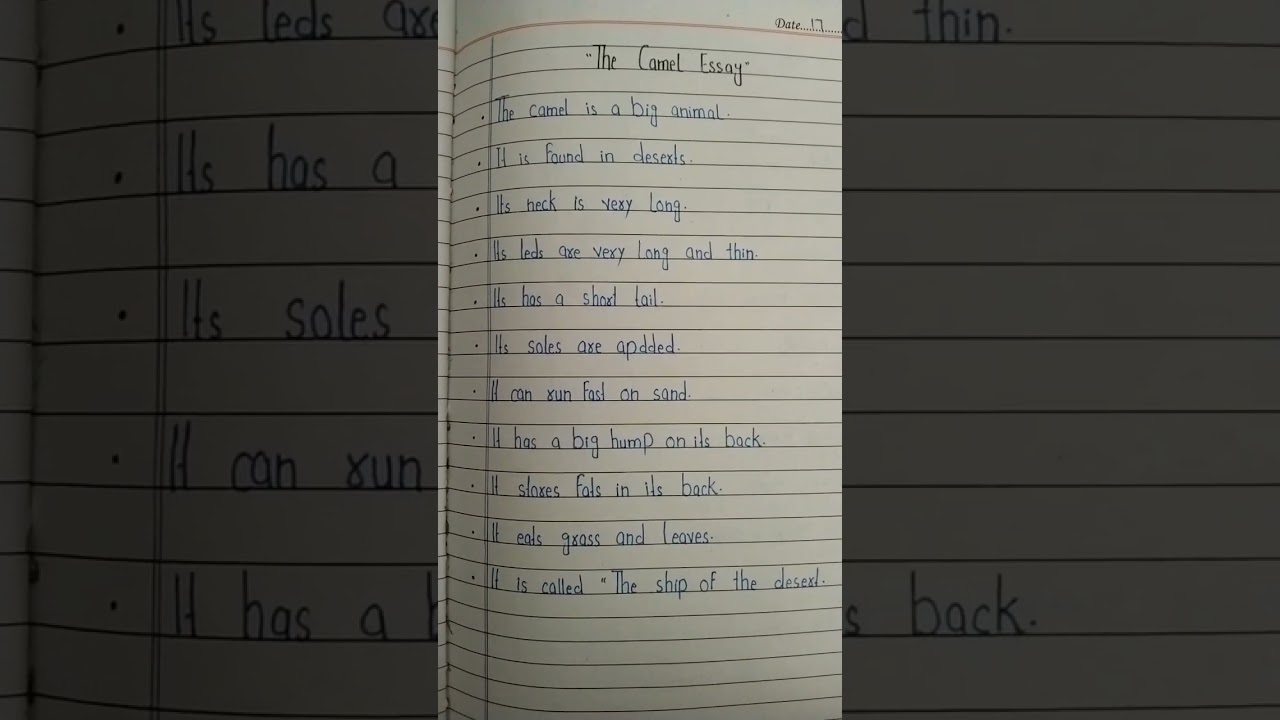 Date....17......
"The Camel Essay"
• The camel is a big animal.
• It is found in deserts.
• Its neck is very long.
• Its leds are very long and thin.
• Its has a short tail.
• Its soles are apdded.
• It can run fast on sand.
• It has a big hump on its back.
• It stores fats in its back.
• It eats grass and leaves.
• It is called "The ship of the desert.